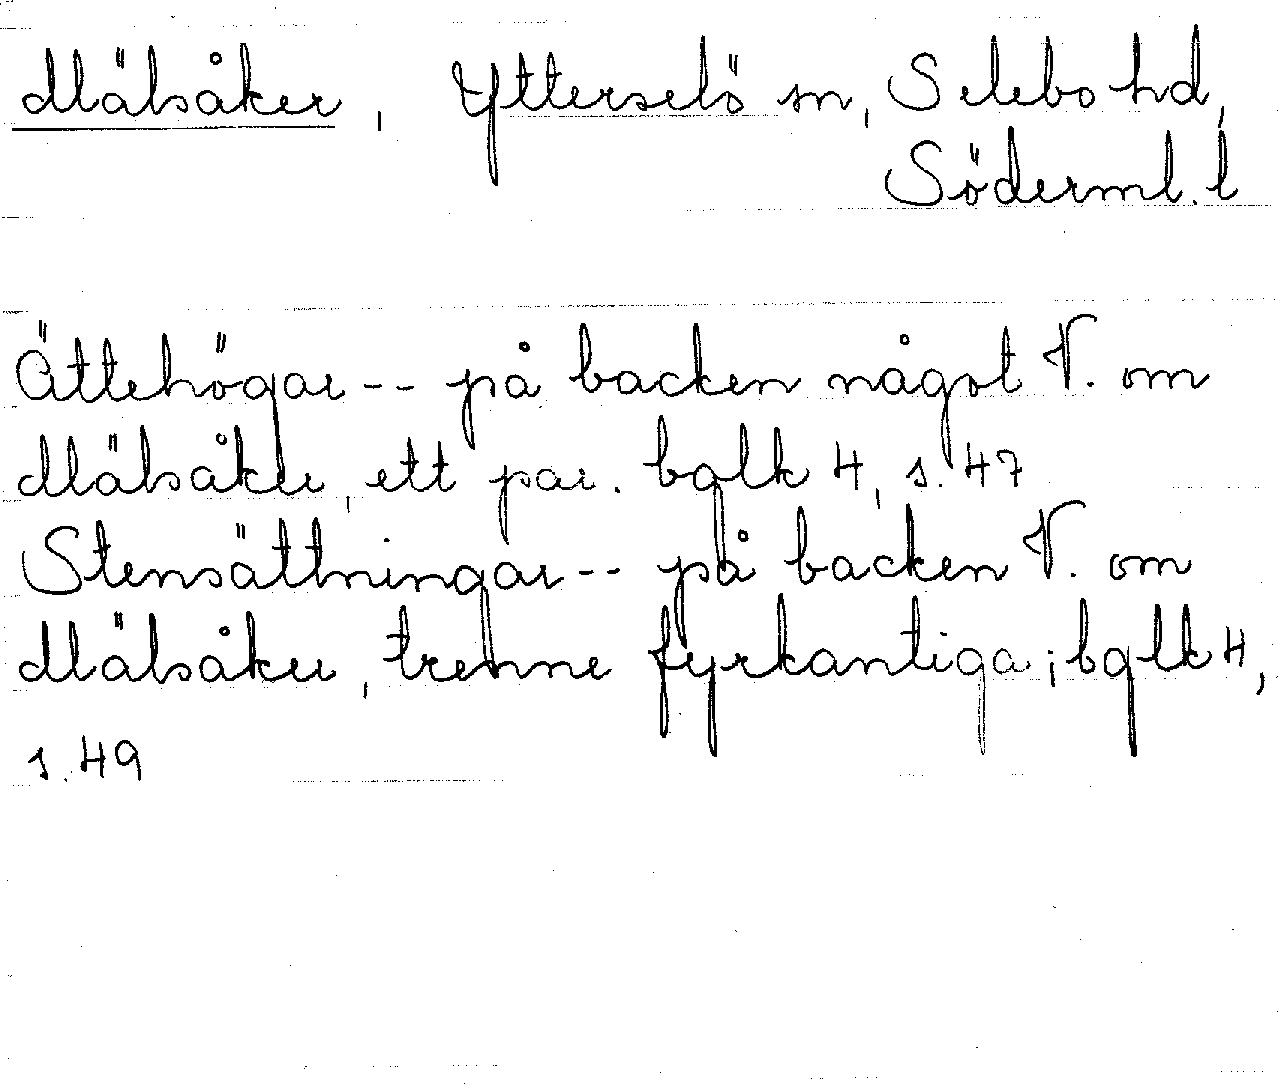 Mälsåker, Ytterselö sn, Selebo hd,
Söderml. l
Ättehögar -- på backen något V. om
Mälsåker, ett par. bglk 4, s. 47
Stensättningar -- på backen V. om
Mälsåker, trenne fyrkantiga; bglk 4,
s. 49